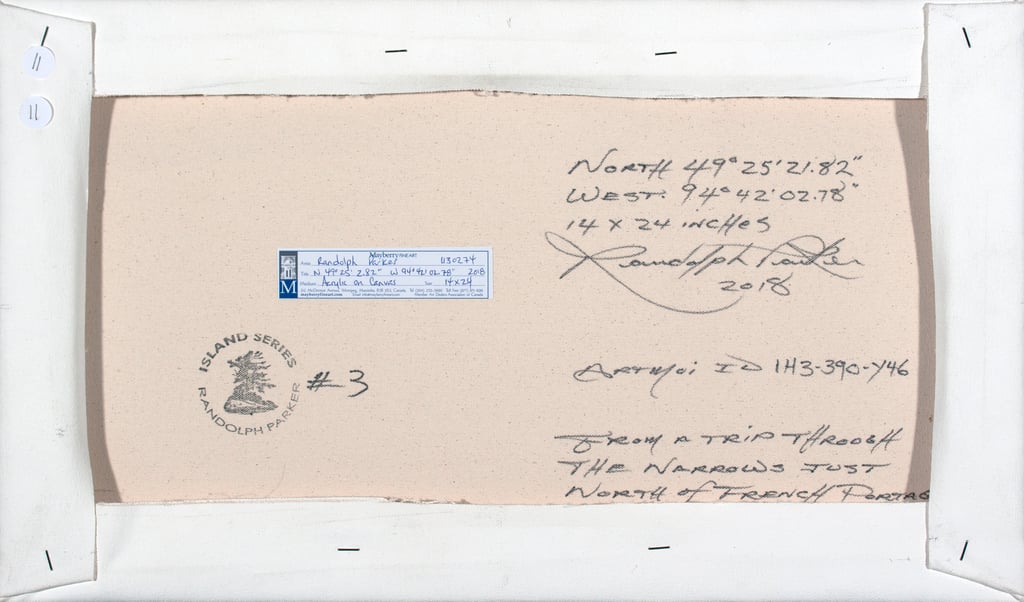 11
11
NORTH 49° 25' 21.82"
WEST. 94° 42' 02.78"
14 X 24 INCHES
Randolph Parker
2018
Mayberry FINE ART
Artist Randolph Parker 1130274
Title N 49° 25' 2.82" W 94° 42' 02.78" 2018
Medium Acrylic on Canvas Size 14x24
M
www.mayberryfineart.com
Member Art Dealers Association of Canada
ISLAND SERIES
RANDOLPH PARKER
# 3
ARTMOI ID 1H3-390-Y46
FROM A TRIP THROOGH
THE NARROWS JUST
NORTH OF FRENCH PORTAG